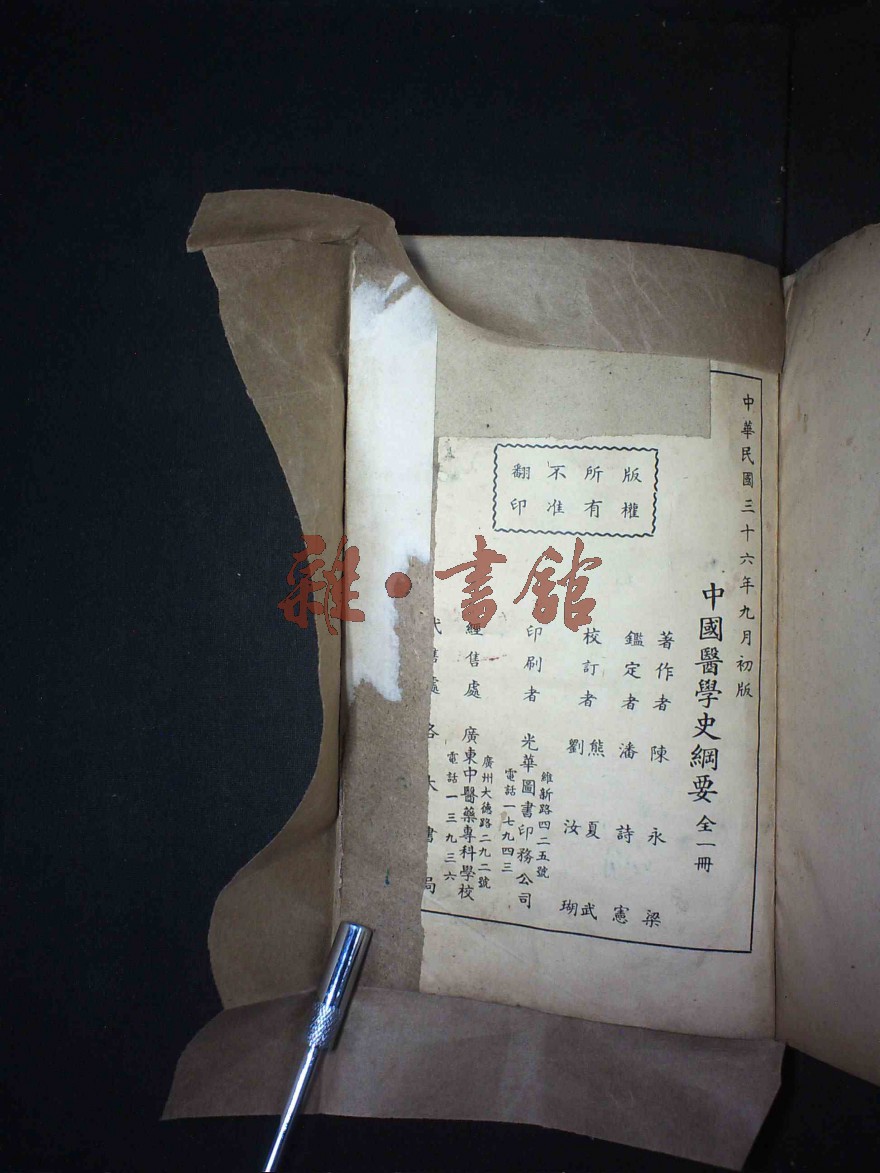 中華民國三十六年九月初版
中國醫學史綱要 全一冊
版權
所有
不准
翻印
著作者 陳永梁
鑑定者 潘詩憲
校訂者 熊夏武
劉汝瑚
印刷者 光華圖書印務公司
維新路四二五號
電話一七九四三
經售處 廣東中醫藥專科學校
廣州大德路二九二號
電話一三九三六
代售處 各大書局
雜·書館